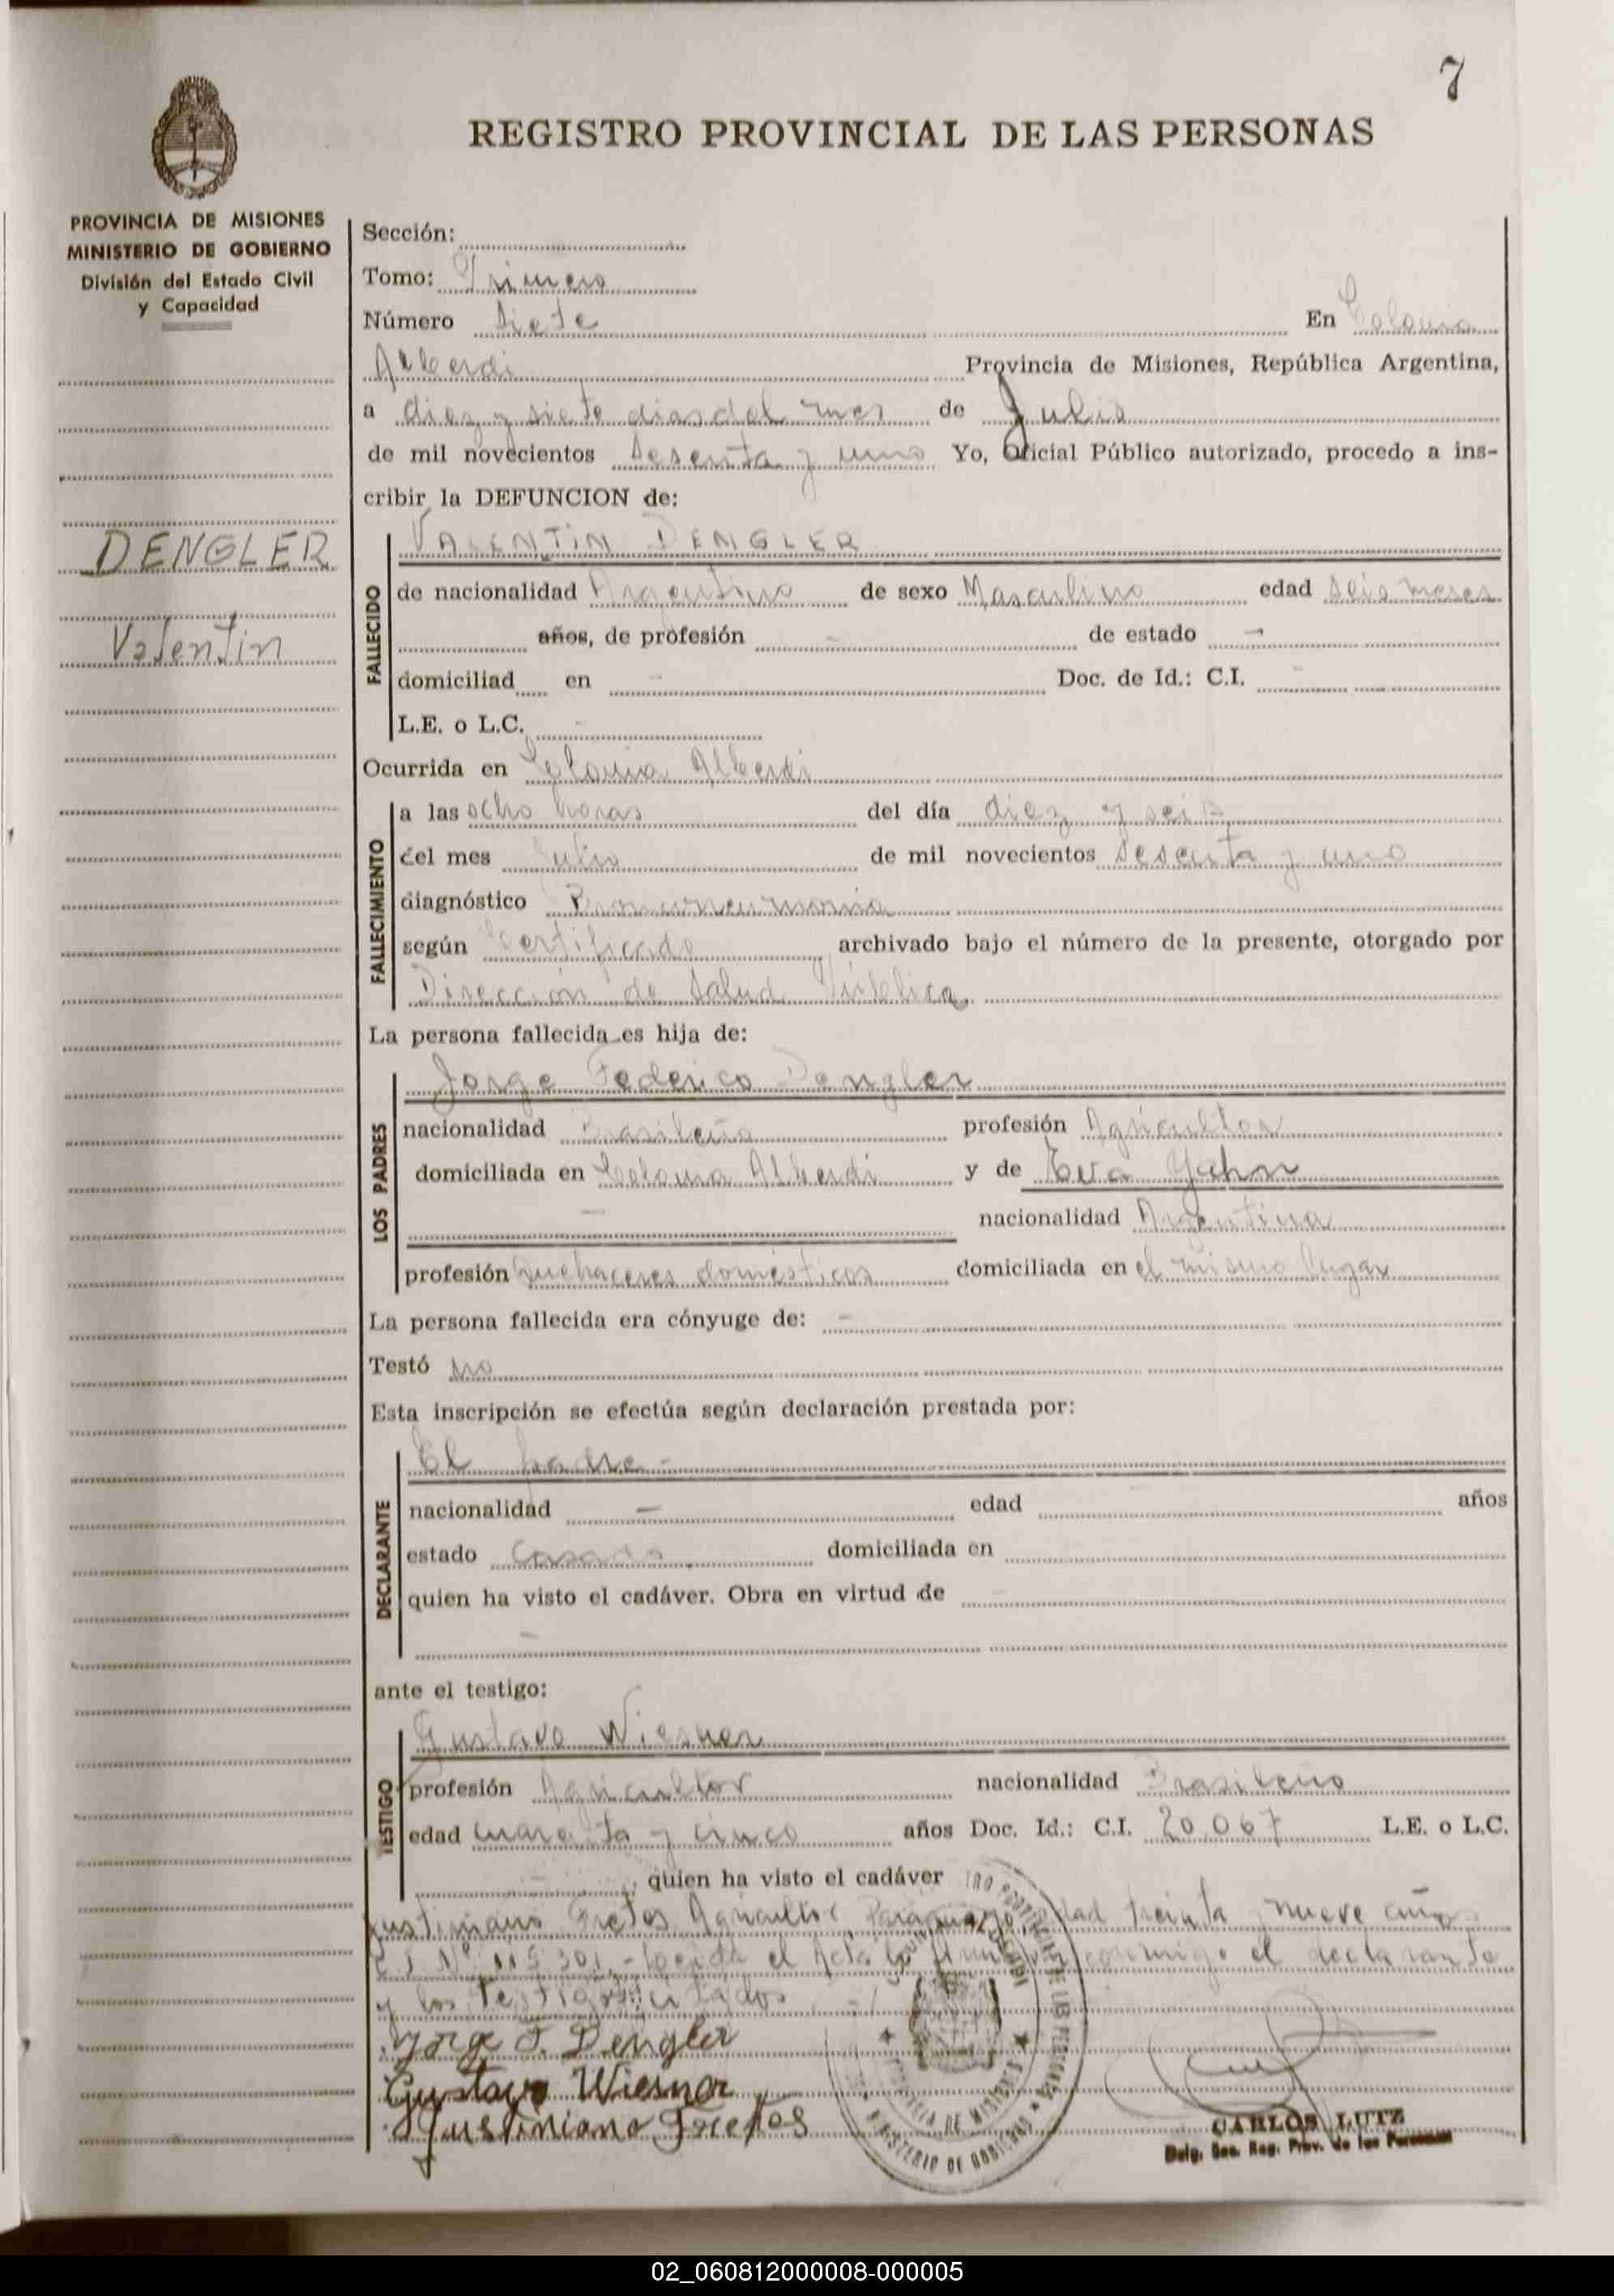 7
REGISTRO PROVINCIAL DE LAS PERSONAS
PROVINCIA DE MISIONES
MINISTERIO DE GOBIERNO
División del Estado Civil
y Capacidad
DENGLER
Valentin
Sección:
Tomo: Primero
Número Siete En Colonia
Alberdi Provincia de Misiones, República Argentina,
a diez y siete dias del mes de Julio
de mil novecientos sesenta y uno Yo, Oficial Público autorizado, procedo a ins-
cribir la DEFUNCION de:
FALLECIDO
VALENTIN DENGLER
de nacionalidad Argentino de sexo Masculino edad seis meses
años, de profesión - de estado -
domiciliad en - Doc. de Id.: C.I. -
L.E. o L.C. -
Ocurrida en Colonia Alberdi
FALLECIMIENTO
a las ocho horas del día diez y seis
del mes Julio de mil novecientos sesenta y uno
diagnóstico Bronconeumonia
según Certificado archivado bajo el número de la presente, otorgado por
Dirección de Salud Pública
La persona fallecida es hija de:
LOS PADRES
Jorge Federico Dengler
nacionalidad Brasileño profesión Agricultor
domiciliada en Colonia Alberdi y de Eva Yahn
- nacionalidad Argentina
profesión quehaceres domésticos domiciliada en el mismo lugar
La persona fallecida era cónyuge de: -
Testó No
Esta inscripción se efectúa según declaración prestada por:
DECLARANTE
El padre -
nacionalidad - edad años
estado Casado domiciliada en
quien ha visto el cadáver. Obra en virtud de
-
ante el testigo:
TESTIGO
Gustavo Wiesner
profesión Agricultor nacionalidad Brasileño
edad cuarenta y cinco años Doc. Id.: C.I. 20.067 L.E. o L.C.
quien ha visto el cadáver
Justiniano Fretes Agricultor Paraguayo edad treinta y nueve años
C.I. Nº 115.301.- Leida el Acta la firman conmigo el declarante
y los Testigos citados
Jorge F. Dengler
Gustavo Wiesner
Justiniano Fretes
PROVINCIA DE MISIONES
MINISTERIO DE GOBIERNO
CARLOS LUTZ
Delg. Sec. Reg. Prov. de las Personas
02_060812000008-000005